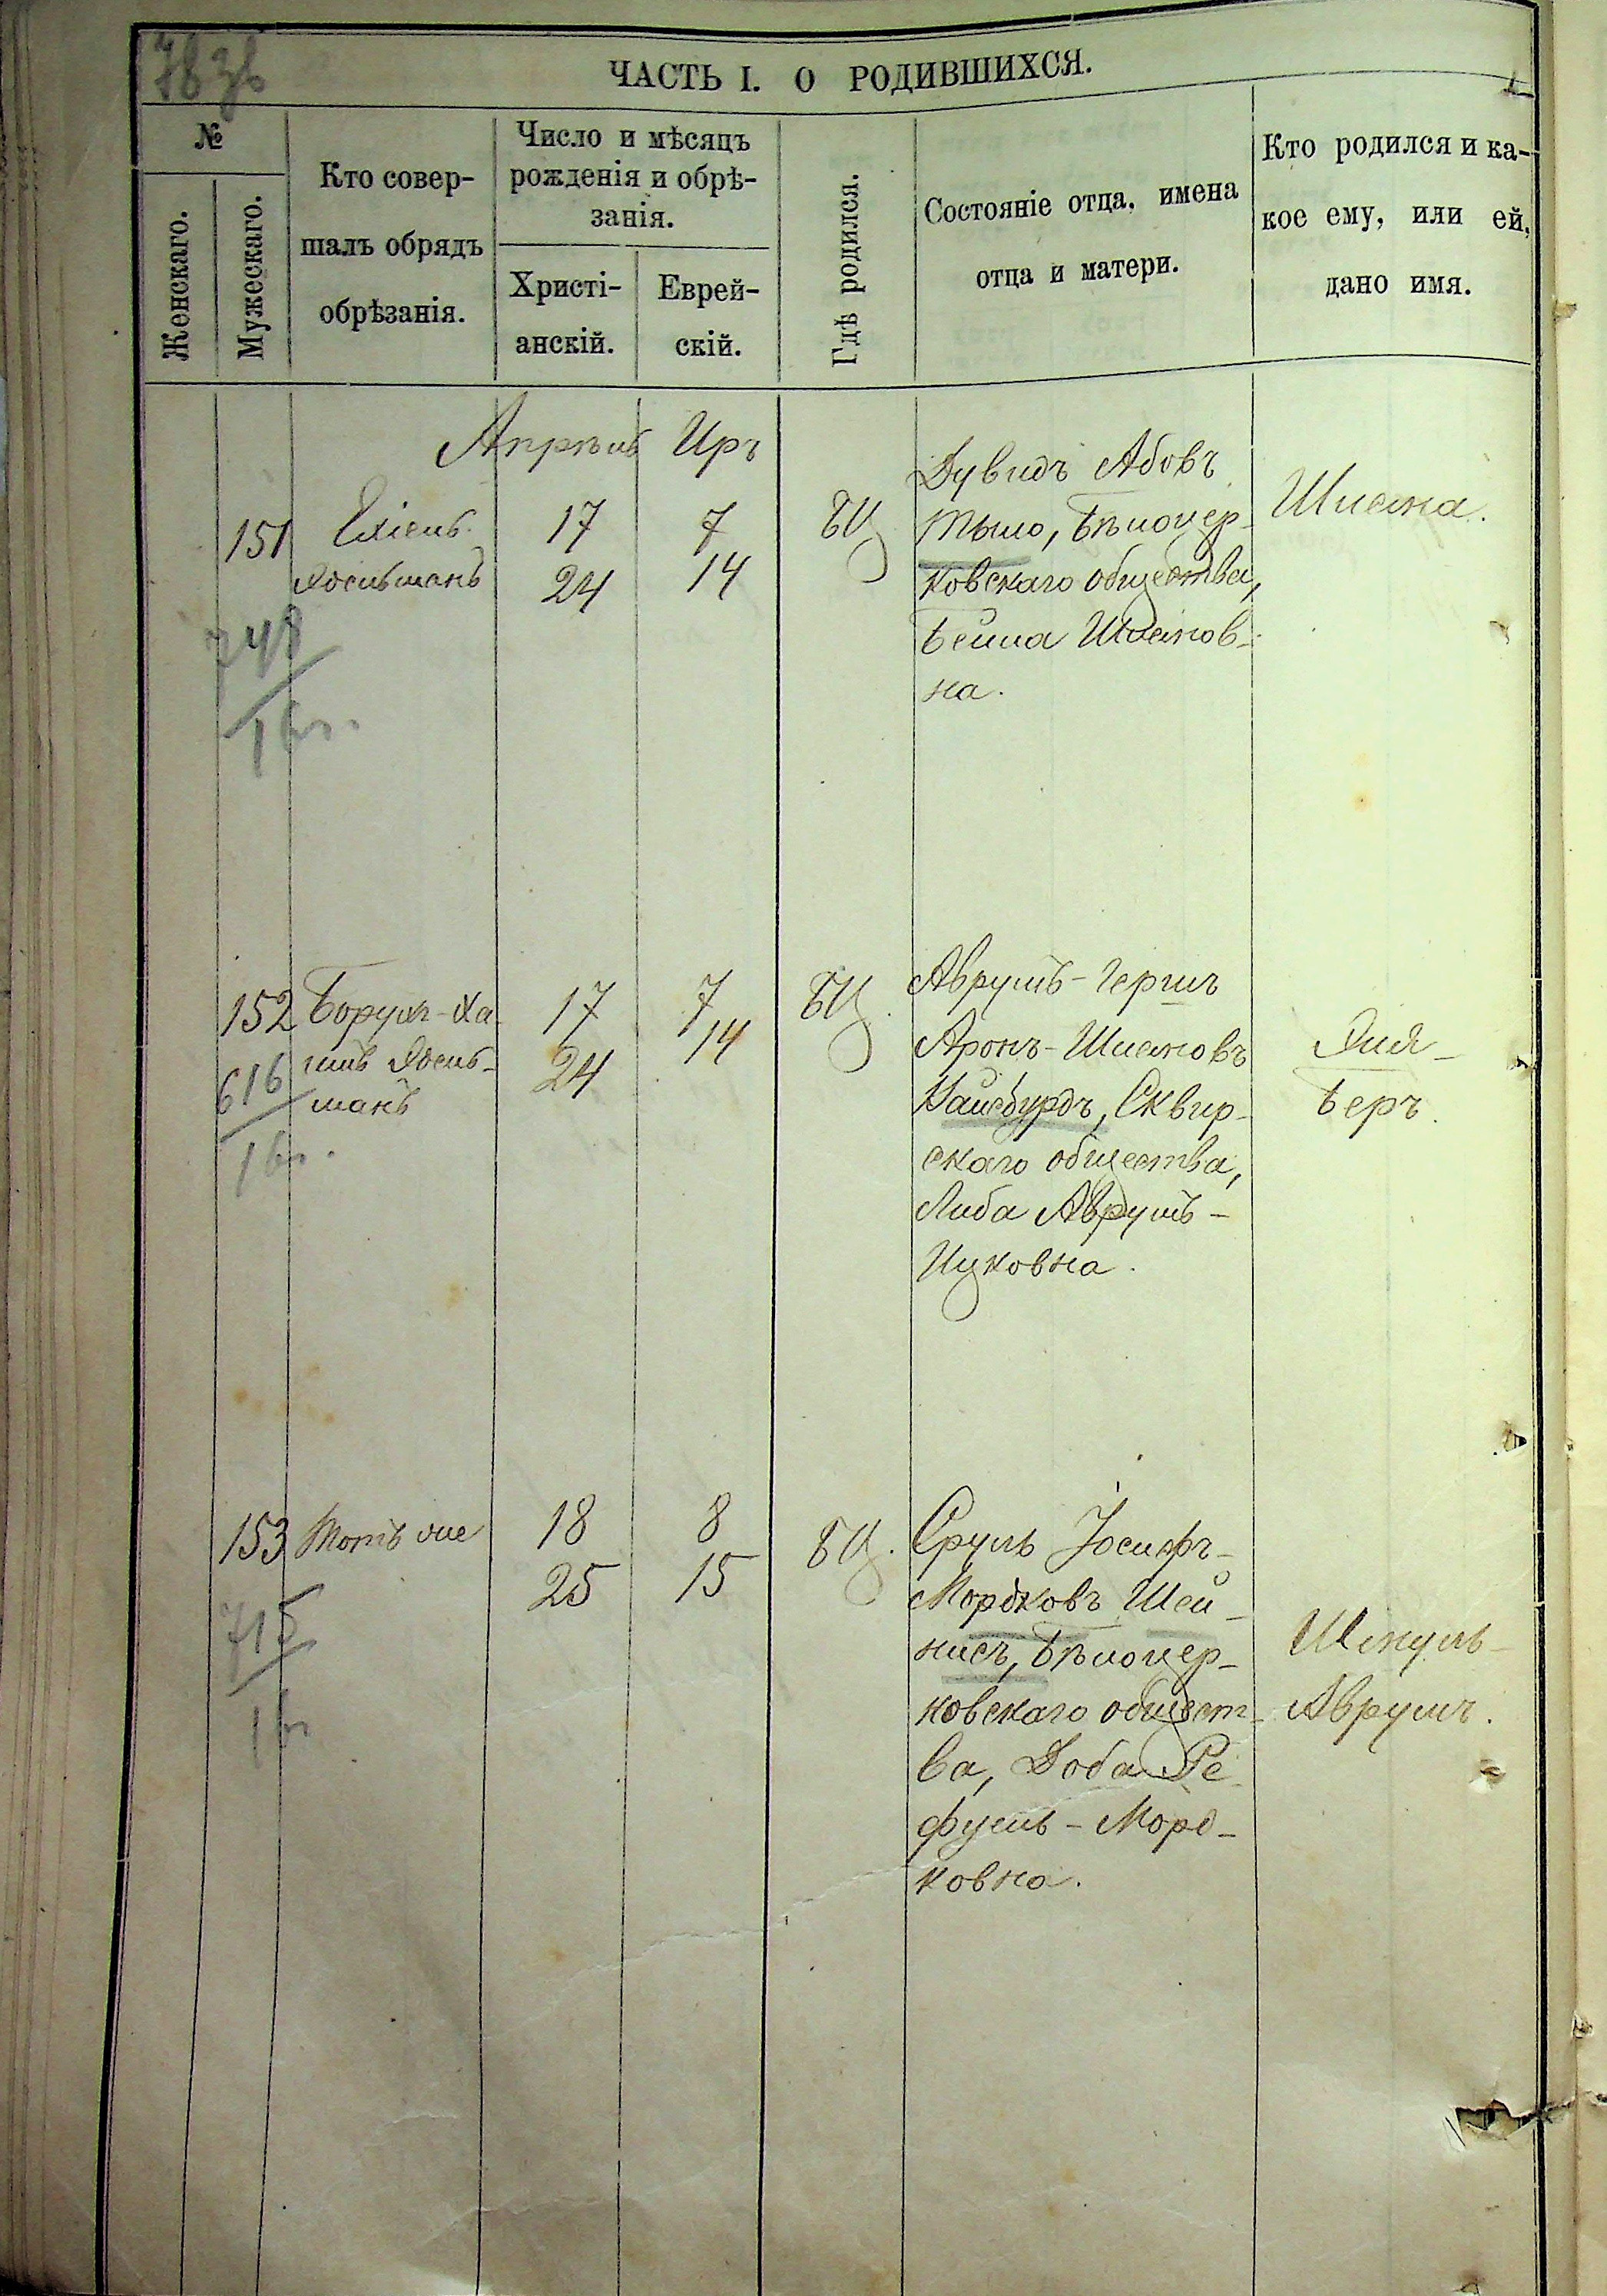 78 зв
ЧАСТЬ I. О РОДИВШИХСЯ.
№
Женскаго.
Мужескаго.
Кто совер-
шалъ обрядъ
обрѣзанія.
Число и мѣсяцъ
рожденія и обрѣ-
занія.
Христі-
анскій.
Еврей-
скій.
Гдѣ родился.
Состояніе отца, имена
отца и матери.
Кто родился и ка-
кое ему, или ей,
дано имя.
Апрѣль Иръ
151
748
16г.
17
24
7
14
БЦ
Дувидъ Абовъ
Тыло, Бѣлоцер-
ковскаго общества,
Бейла Шлемов-
на.
Шлема.
152
616
16г.
Борухъ-Ха
17
24
7
14
БЦ.
Аврумъ-Гершъ
Аронъ-Шлемовъ
Вайсбурдъ, Сквир-
скаго общества,
Либа Аврумъ-
Ицковна.
Беръ.
153
715
16г
Тотъ же
18
25
8
15
БЦ.
Сруль Іосифъ-
Мордковъ Шей-
нисъ, Бѣлоцер-
ковскаго общест-
ва, Доба Ре-
фуель-Морд-
ковна.
Шмуль-
Аврумъ.